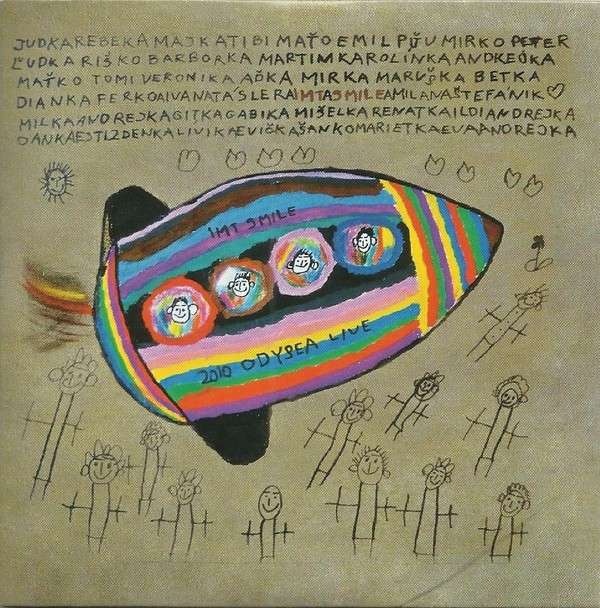 JUDKAREBEKA MAJKATIBI MAŤOEMIL PUJU MIRKO PETER
ĽUDKA RIŠKO BARBORKA MARTIMKAROLINKA ANDREJKA
MAŤKO TOMI VERONIKA AČKA MIRKA MARUŠKA BETKA
DIANKA FERKOAIVANATAŠLERAIMTASMILEAMILANAŠTEFANIK
MILKAANDREJKAGITKAGABIKA MIŠELKA RENATKAILDIANDREJKA
DANKAESTIZDENKALIVIKAEVIČKAŠANKOMARIETKAEVAANDREJKA
IMT SMILE
2010 ODYSEA LIVE